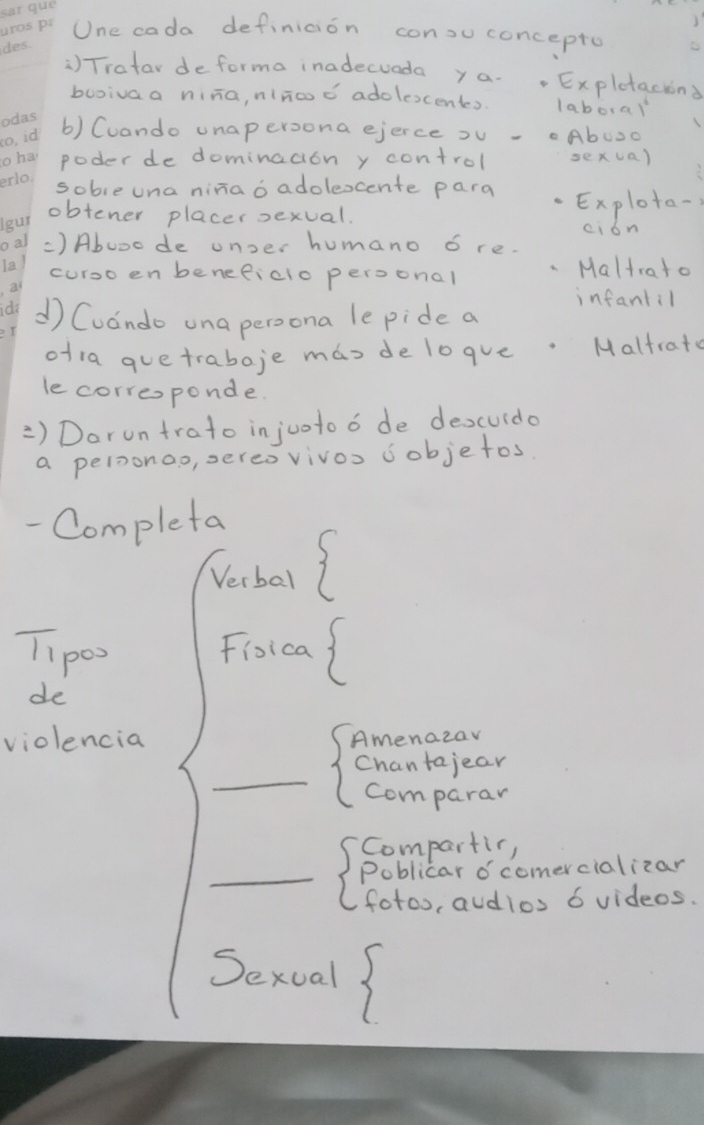 sar que
uros pa
des.
odas
ro, id
o ha
erlo.
lgur
o al
la
, a
ida
e r
Une cada definición con su concepto
a) Tratar de forma inadecuada y a-
busiva a niña, niños ó adolescentes.
b) Cuando una persona ejerce su
poder de dominación y control
sobre una niña ó adolescente para
obtener placer sexual.
c) Abuso de un ser humano ó re-
curso en beneficio personal
d) Cuándo una persona le pide a
otra que trabaje más de lo que
le corresponde.
e) Dar un trato injusto ó de descuido
a personas, seres vivos ú objetos.
• Explotación
laboral
• Abuso
sexual
• Explota-
ción
• Maltrato
infantil
• Maltrato
- Completa
Tipos
de
violencia
Verbal {
Física {
____ { Amenazar
Chantajear
Comparar
____ { Compartir,
Publicar ó comercializar
fotos, audios ó videos.
Sexual {